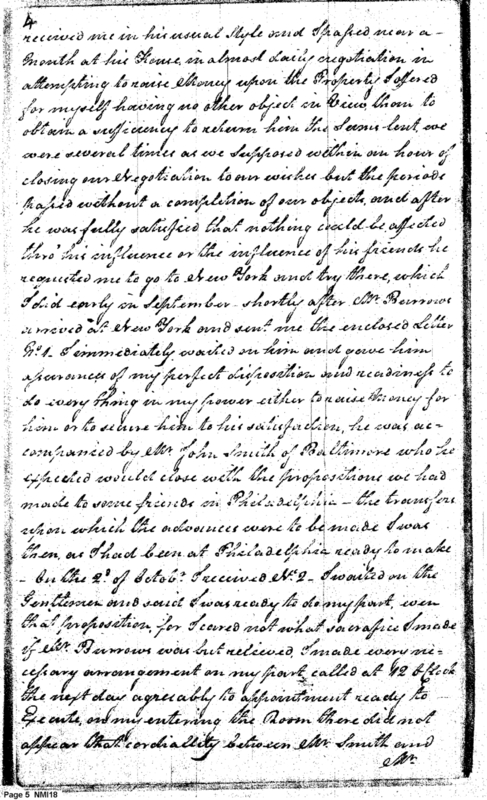 4
received me in his usual Style and I passed near a
Month at his House, in almost daily negotiation in
attempting to raise Money upon the Property I offered
for myself having no other object in View than to
obtain a sufficiency to return him the Sums lent, we
were several times as we supposed within an hour of
closing our Negotiation to our wishes but the periods
passed without a completion of our objects, and after
he was fully satisfied that nothing could be affected
thro' his influence or the influence of his friends he
requested me to go to New York and try there, which
I did early in September - shortly after Mr. Burrows
arrived at New York and sent me the enclosed Letter
No. 1 - I immediately waited on him and gave him
assurances of my perfect disposition and readiness to
do every thing in my power either to raise Money for
him or to secure him to his satisfaction, he was ac-
companied by Mr. John Smith of Baltimore who he
expected would close with the propositions we had
made to some friends in Philadelphia - the transfers
upon which the advances were to be made I was
then, as I had been at Philadelphia ready to make
- On the 2d. of Octobr. I received No. 2 - I waited on the
Gentlemen and said I was ready to do my part, even
that proposition, for I cared not what sacrifice I made
if Mr. Burrows was but relieved, I made every ne-
cessary arrangement on my part, called at 12 OClock
the next day agreeably to appointment ready to
Execute, on my entering the Room there did not
appear that cordiallity between Mr. Smith and
Mr.
Page 5 NMI18